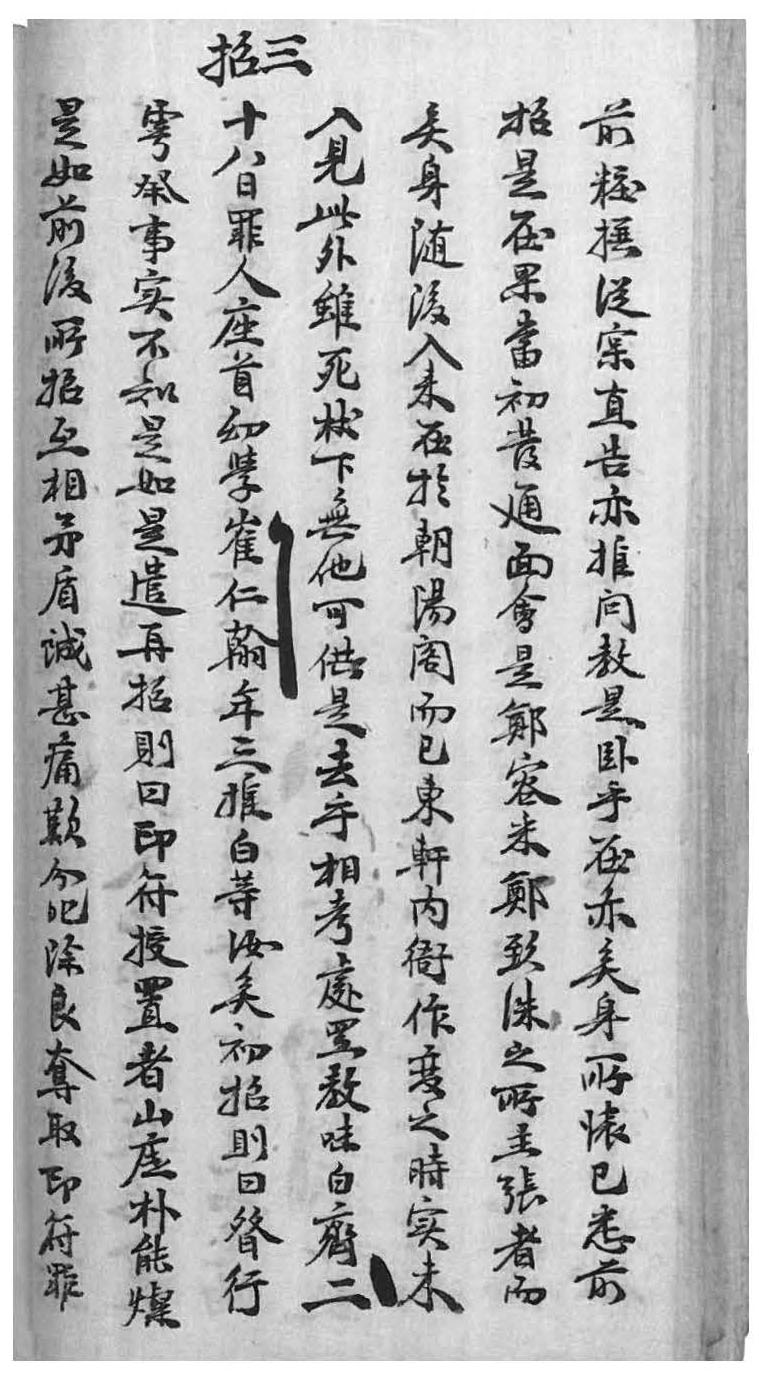 三招
前粧撰從实直告亦推问教是卧乎在亦矣身所懐已悉前
招是在果當初發通面會是鄭容来鄭致洙之所主張者而
矣身随後入来在於朝陽阁而已東軒内衙作變之時实未
入見此外雖死杖下無他可供是去乎相考處置教味白齊二
十八日罪人座首幼學崔仁翰年三推白等汝矣初招則曰行
雩祭事实不知是如是遣再招則曰印符授置者山底朴能燦
是如前後所招互相矛盾誠甚痛歎分叱除良奪取印符罪